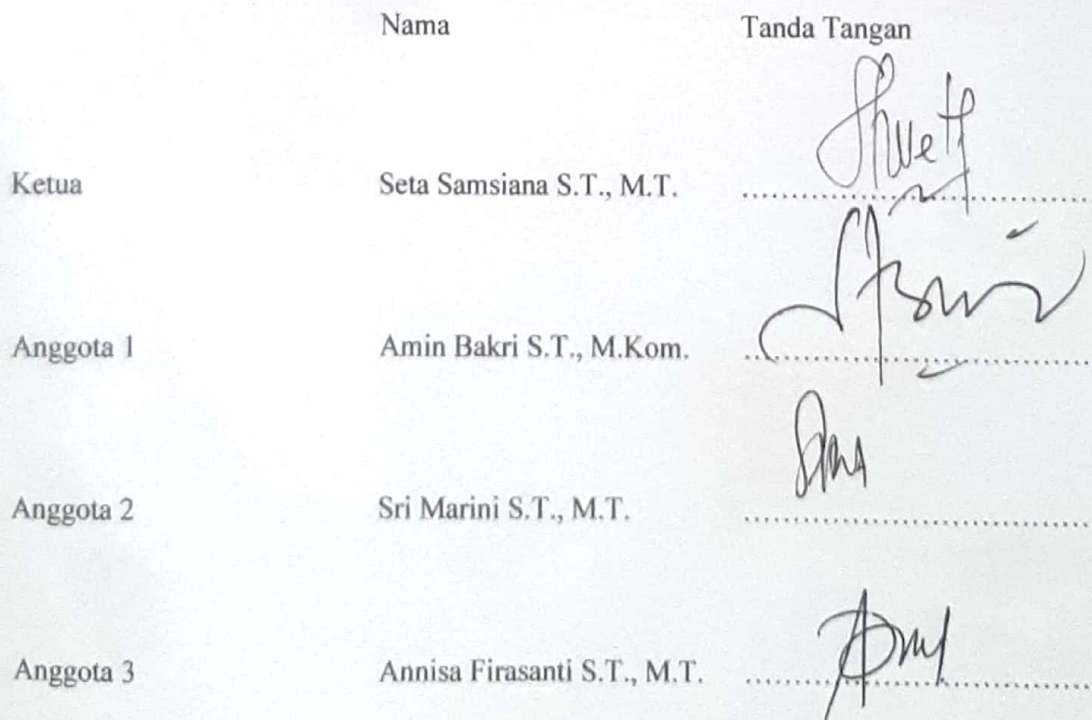 Nama Tanda Tangan
Ketua Seta Samsiana S.T., M.T. ........................................
Anggota 1 Amin Bakri S.T., M.Kom. ........................................
Anggota 2 Sri Marini S.T., M.T. ........................................
Anggota 3 Annisa Firasanti S.T., M.T. ........................................